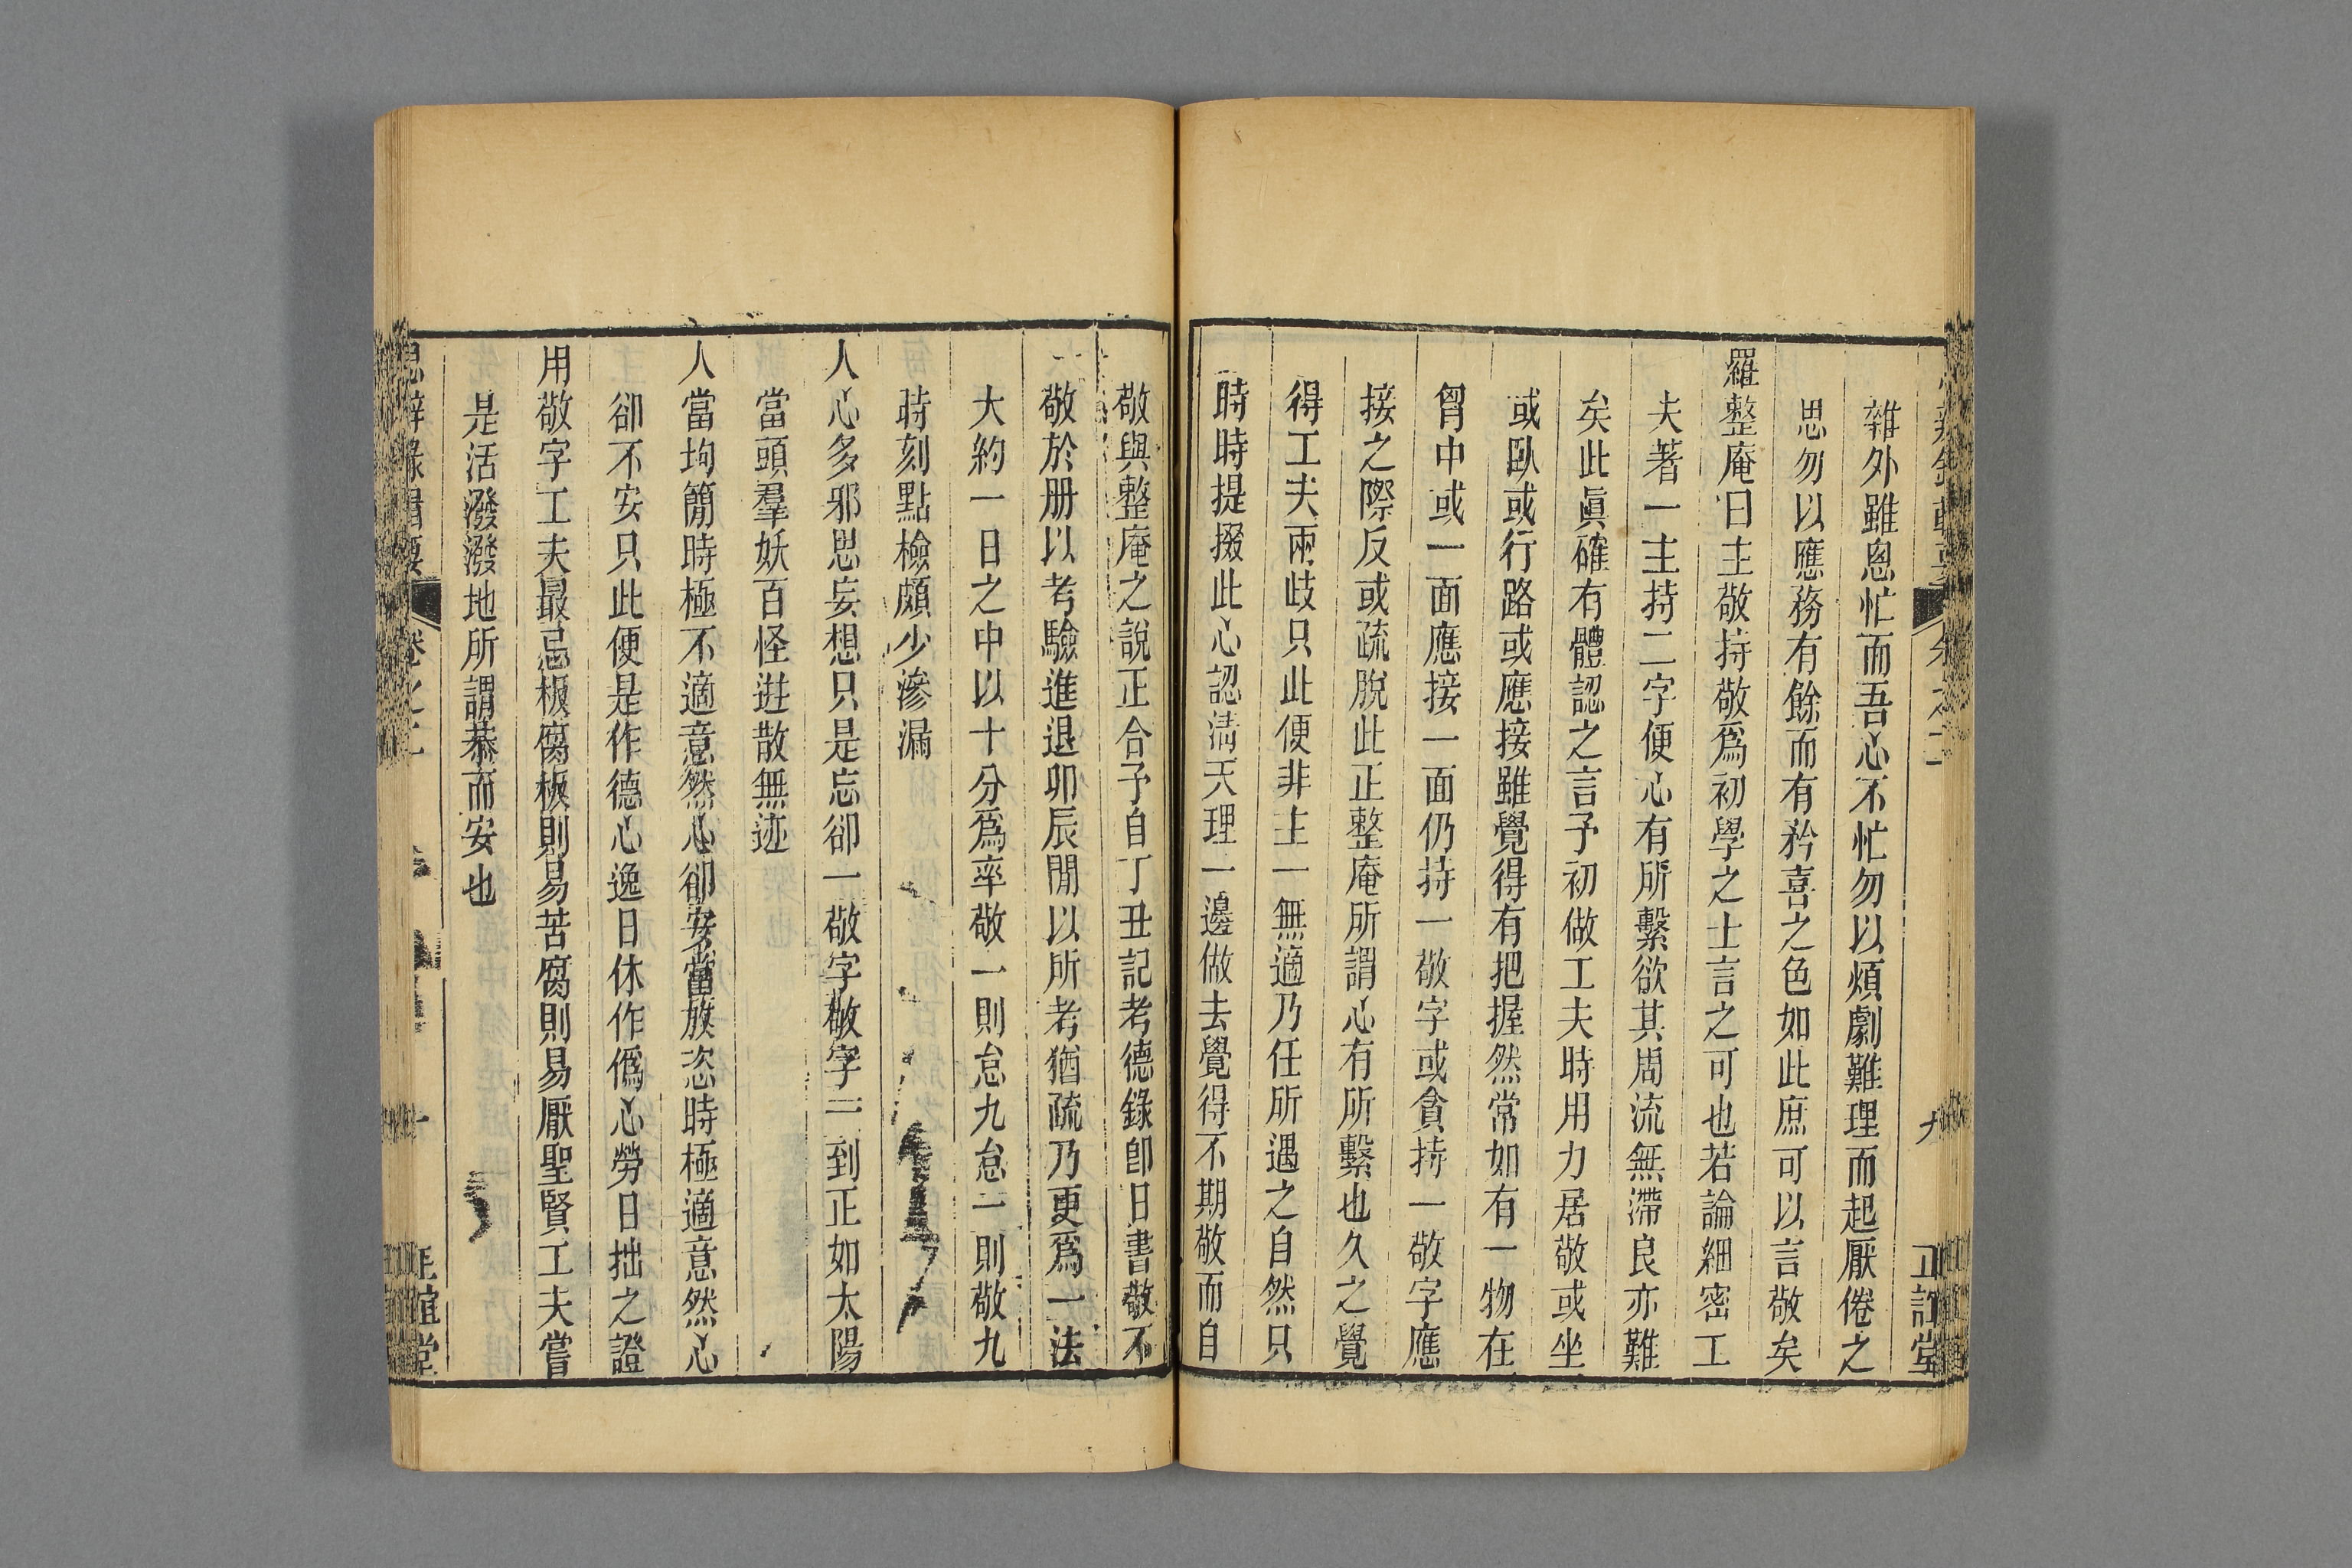 雜外雖悤忙而吾心不忙勿以煩劇難理而起厭倦之
思勿以應務有餘而有矜喜之色如此庶可以言敬矣
羅整庵曰主敬持敬爲初學之士言之可也若論細密工
夫著一主持二字便心有所繫欲其周流無滯良亦難
矣此眞確有體認之言予初做工夫時用力居敬或坐
或臥或行路或應接雖覺得有把握然常如有一物在
胷中或一面應接一面仍持一敬字或貪持一敬字應
接之際反或疏脫此正整庵所謂心有所繫也久之覺
得工夫兩歧只此便非主一無適乃任所遇之自然只
時時提掇此心認淸天理一邊做去覺得不期敬而自
敬與整庵之說正合予自丁丑記考德錄卽日書敬不
敬於册以考驗進退卯辰閒以所考猶疏乃更爲一法
大約一日之中以十分爲率敬一則怠九怠一則敬九
時刻點檢頗少滲漏
人心多邪思妄想只是忘卻一敬字敬字一到正如太陽
當頭羣妖百怪迸散無迹
人當拘簡時極不適意然心卻安當放恣時極適意然心
卻不安只此便是作德心逸日休作僞心勞日拙之證
用敬字工夫最忌板腐板則易苦腐則易厭聖賢工夫嘗
是活潑潑地所謂恭而安也